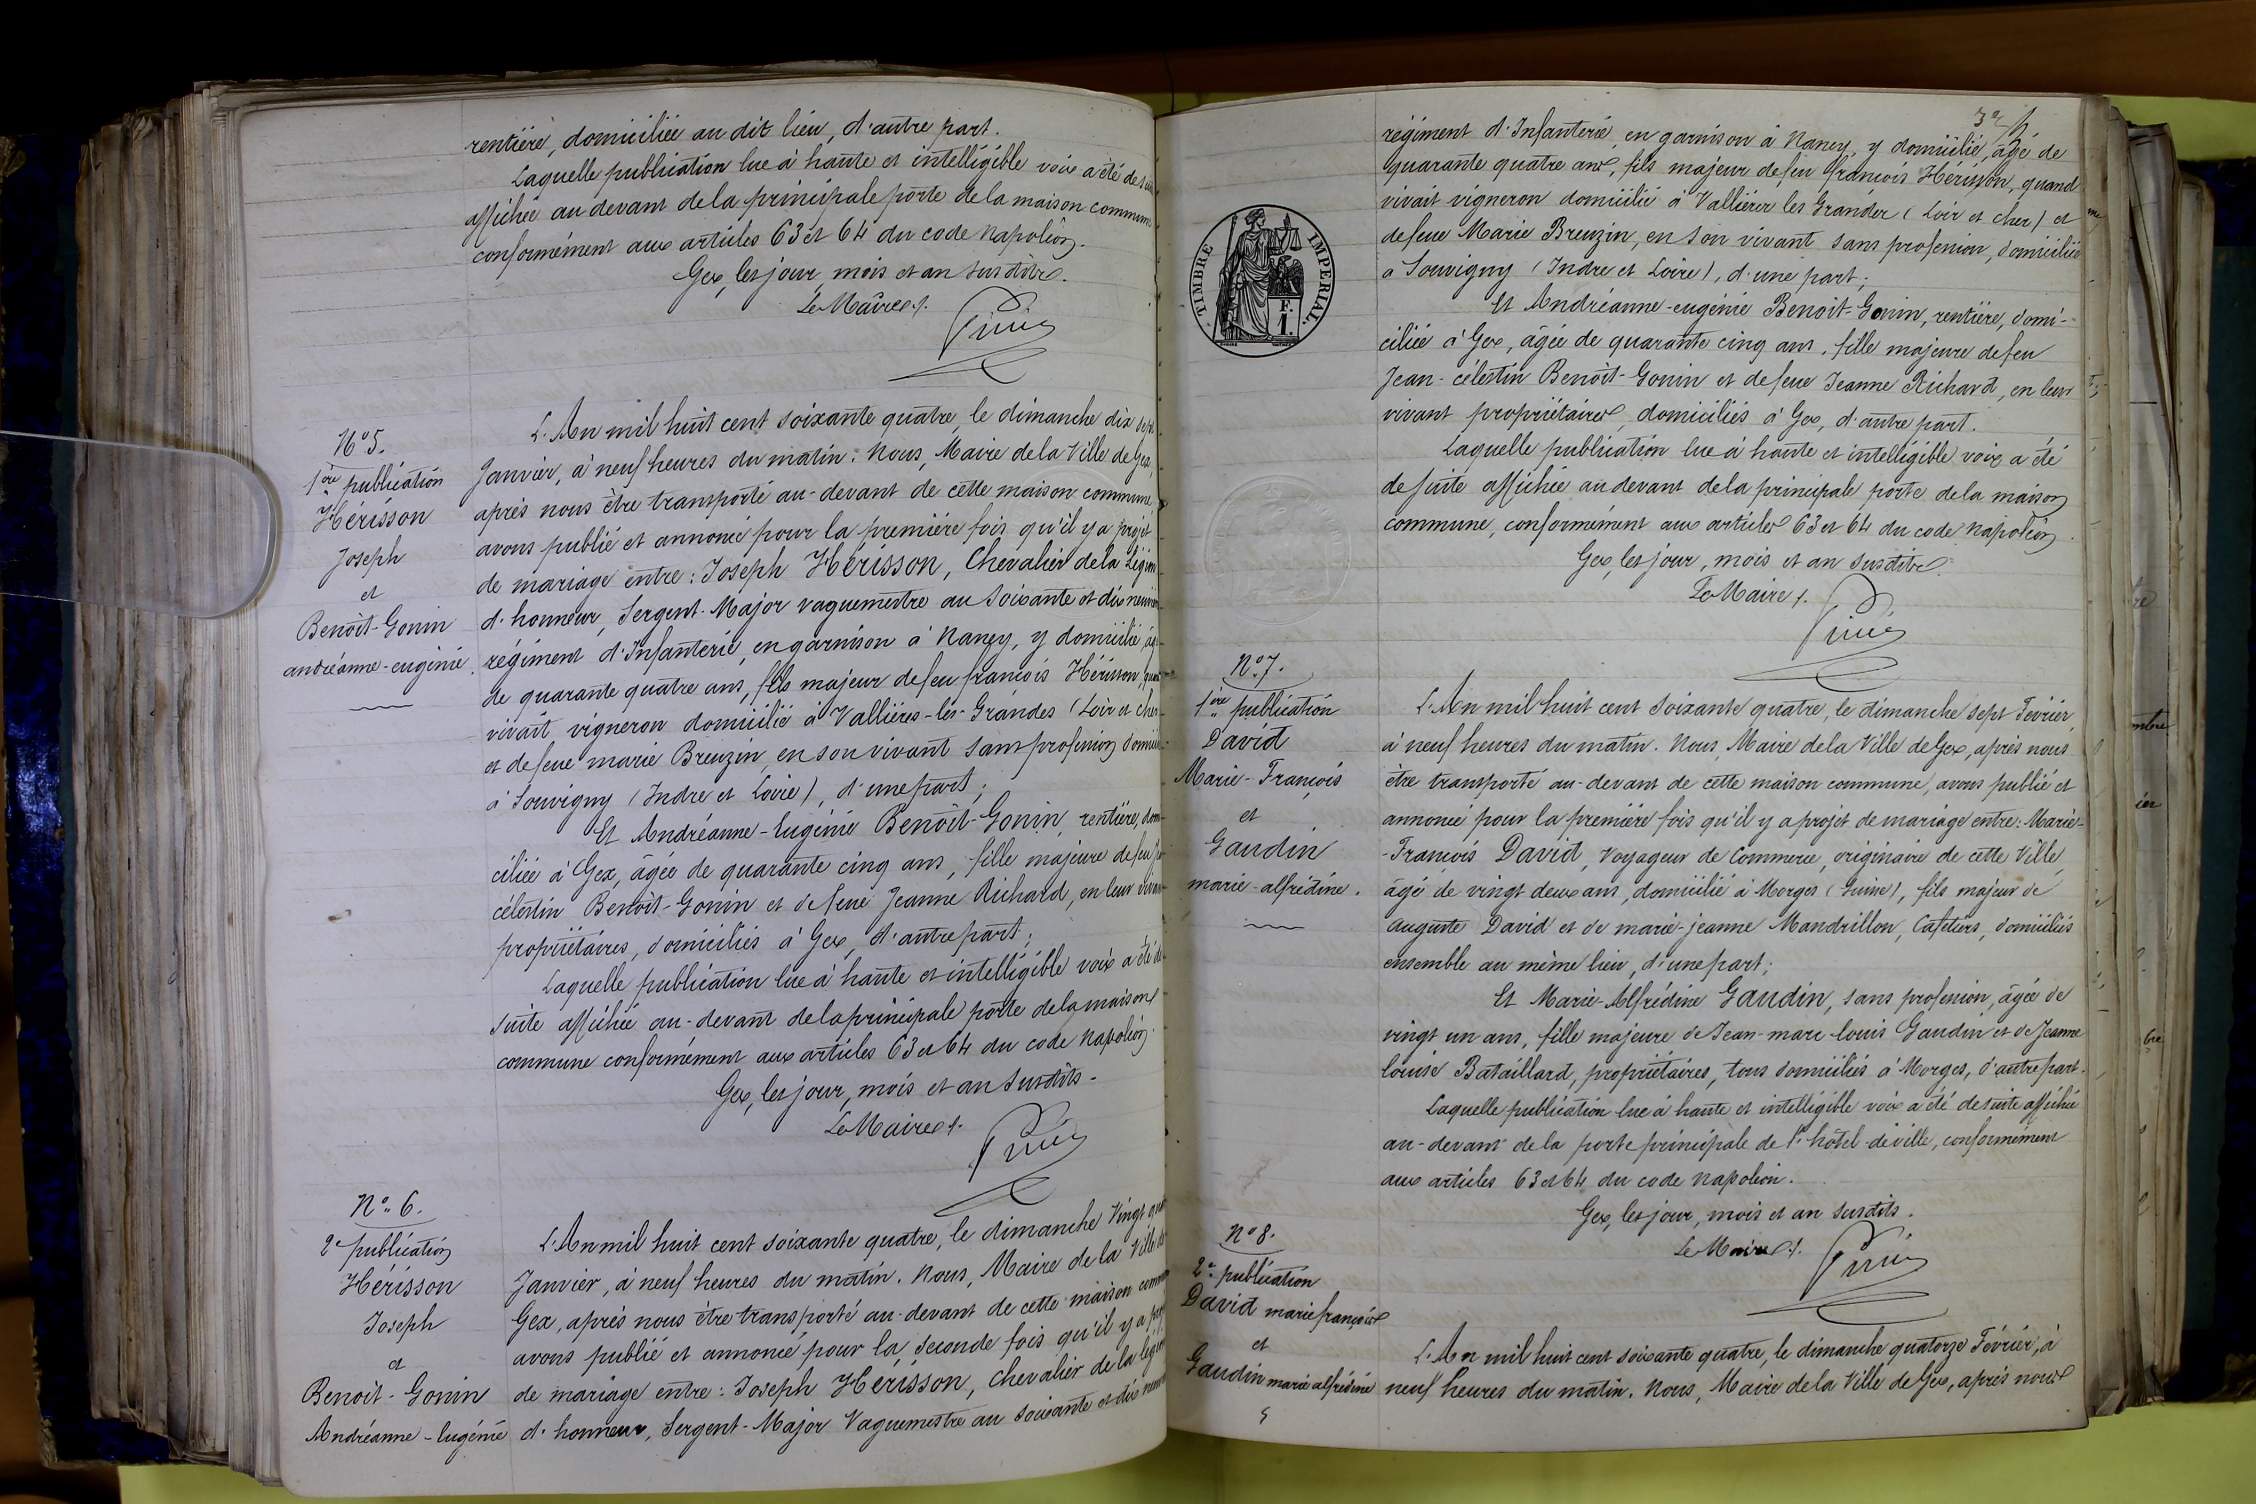 rentière, domiciliée au dit lieu, d'autre part.
Laquelle publication lue à haute et intelligible voix a été de
affichée au devant de la principale porte de la maison commune
conformément aux articles 63 et 64 du code napoléon.
Gex, les jour, mois et an susdits.
Le Maire
N° 5.
1ère publication
Hérisson
Joseph
et
Benoit-Gonin
andréanne-eugénie.
L'An mil huit cent soixante quatre, le dimanche dix sept
Janvier, à neuf heures du matin. Nous, Maire de la Ville de Gex,
après nous être transporté au-devant de cette maison commune,
avons publié et annoncé pour la première fois qu'il y a projet
de mariage entre : Joseph Hérisson, Chevalier de la Légion
d'honneur, Sergent-Major vaguemestre au Soixante et dix neuvième
régiment d'Infanterie, en garnison à Nancy, y domicilié, âgé
de quarante quatre ans, fils majeur de feu françois Hérisson, quand
vivait vigneron domicilié à Vallières-les-Grandes (Loir et Cher)
et de feue marie Breuzin, en son vivant sans profession, domiciliée
à Souvigny (Indre et Loire), d'une part ;
Et Andréanne-Eugénie Benoit-Gonin, rentière, domi-
ciliée à Gex, âgée de quarante cinq ans, fille majeure de feu
célestin Benoit-Gonin et de feue Jeanne Richard, en leur vivant
propriétaires, domiciliés à Gex, d'autre part ;
Laquelle publication lue à haute et intelligible voix a été de
suite affichée au-devant de la principale porte de la maison
commune conformément aux articles 63 et 64 du code napoléon.
Gex, les jour, mois et an susdits.
Le Maire
N° 6.
2e publication
Hérisson
Joseph
et
Benoit-Gonin
Andréanne-Eugénie
L'An mil huit cent soixante quatre, le dimanche Vingt quatre
Janvier, à neuf heures du matin. Nous, Maire de la Ville de
Gex, après nous être transporté au-devant de cette maison commune
avons publié et annoncé pour la seconde fois qu'il y a projet
de mariage entre : Joseph Hérisson, Chevalier de la légion
d'honneur, Sergent-Major Vaguemestre au soixante et dix neuvième
TIMBRE IMPERIAL.
F.
1.
régiment d'Infanterie, en garnison à Nancy, y domicilié, âgé de
quarante quatre ans, fils majeur de feu françois Hérisson, quand
vivait vigneron domicilié à Vallières les Grandes (Loir et Cher) et
de feue Marie Breuzin, en son vivant sans profession, domiciliée
a Souvigny (Indre et Loire), d'une part ;
Et Andréanne-eugénie Benoit-Gonin, rentière, domi-
ciliée à Gex, âgée de quarante cinq ans, fille majeure de feu
Jean-célestin Benoit-Gonin et de feue Jeanne Richard, en leur
vivant propriétaires, domiciliés à Gex, d'autre part.
Laquelle publication lue à haute et intelligible voix a été
de suite affichée au devant de la principale porte de la maison
commune, conformément aux articles 63 et 64 du code napoléon.
Gex, les jour, mois et an susdits.
Le Maire
N° 7.
1ère publication
David
Marie-François
et
Gaudin
marie-alfrédine.
L'An mil huit cent soixante quatre, le dimanche sept Février,
à neuf heures du matin. Nous, Maire de la Ville de Gex, après nous
être transporté au-devant de cette maison commune, avons publié et
annoncé pour la première fois qu'il y a projet de mariage entre : Marie-
-François David, Voyageur de Commerce, originaire de cette Ville,
âgé de vingt deux ans, domicilié à Morges (Suisse), fils majeur de
auguste David et de marie-jeanne Mandrillon, Cafetiers, domiciliés
ensemble au même lieu, d'une part ;
Et Marie-Alfrédine Gaudin, sans profession, âgée de
vingt un ans, fille majeure de Jean-marc-louis Gaudin et de Jeanne
louise Bataillard, propriétaires, tous domiciliés à Morges, d'autre part.
Laquelle publication lue à haute et intelligible voix a été de suite affichée
au-devant de la porte principale de l'hôtel-de ville, conformément
aux articles 63 et 64 du code napoléon.
Gex, les jour, mois et an susdits.
Le Maire
N° 8.
2e publication
David marie françois
et
Gaudin marie alfrédine
L'An mil huit cent soixante quatre, le dimanche quatorze Février, à
neuf heures du matin. Nous, Maire de la Ville de Gex, après nous